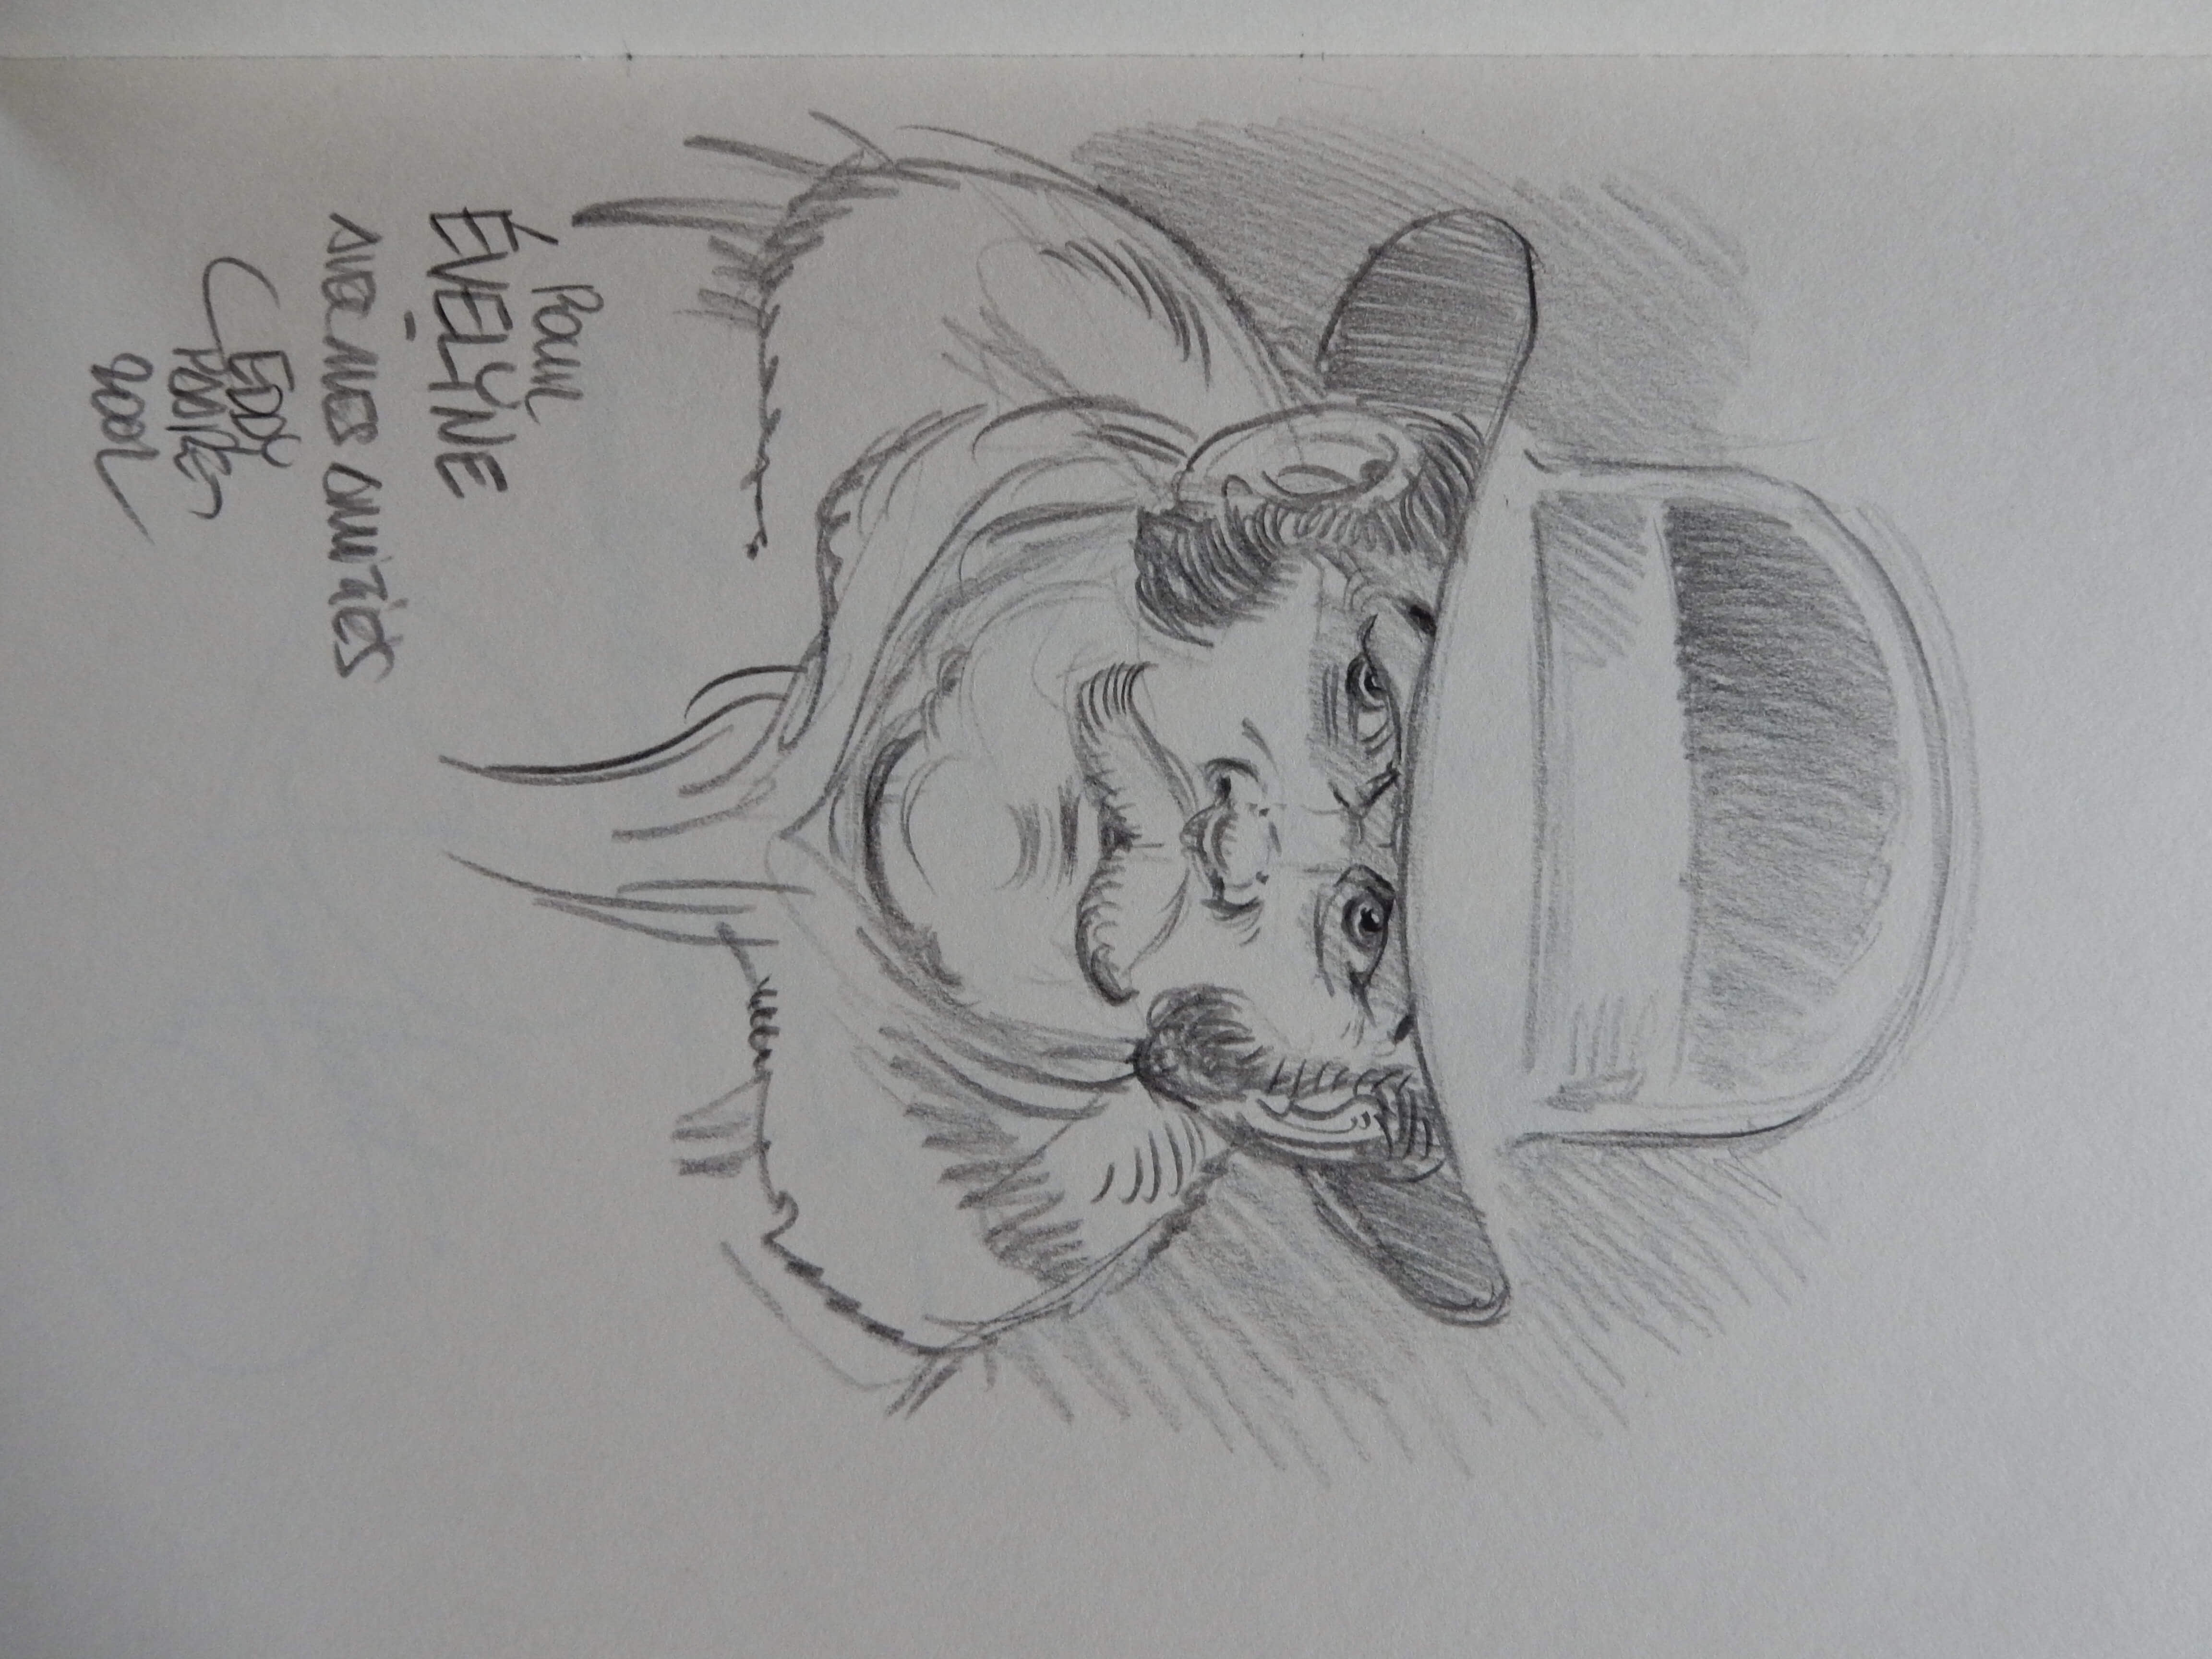 POUR
ÉVELYNE
AVEC MES AMITIÉS
EDDY
PAAPE
2002